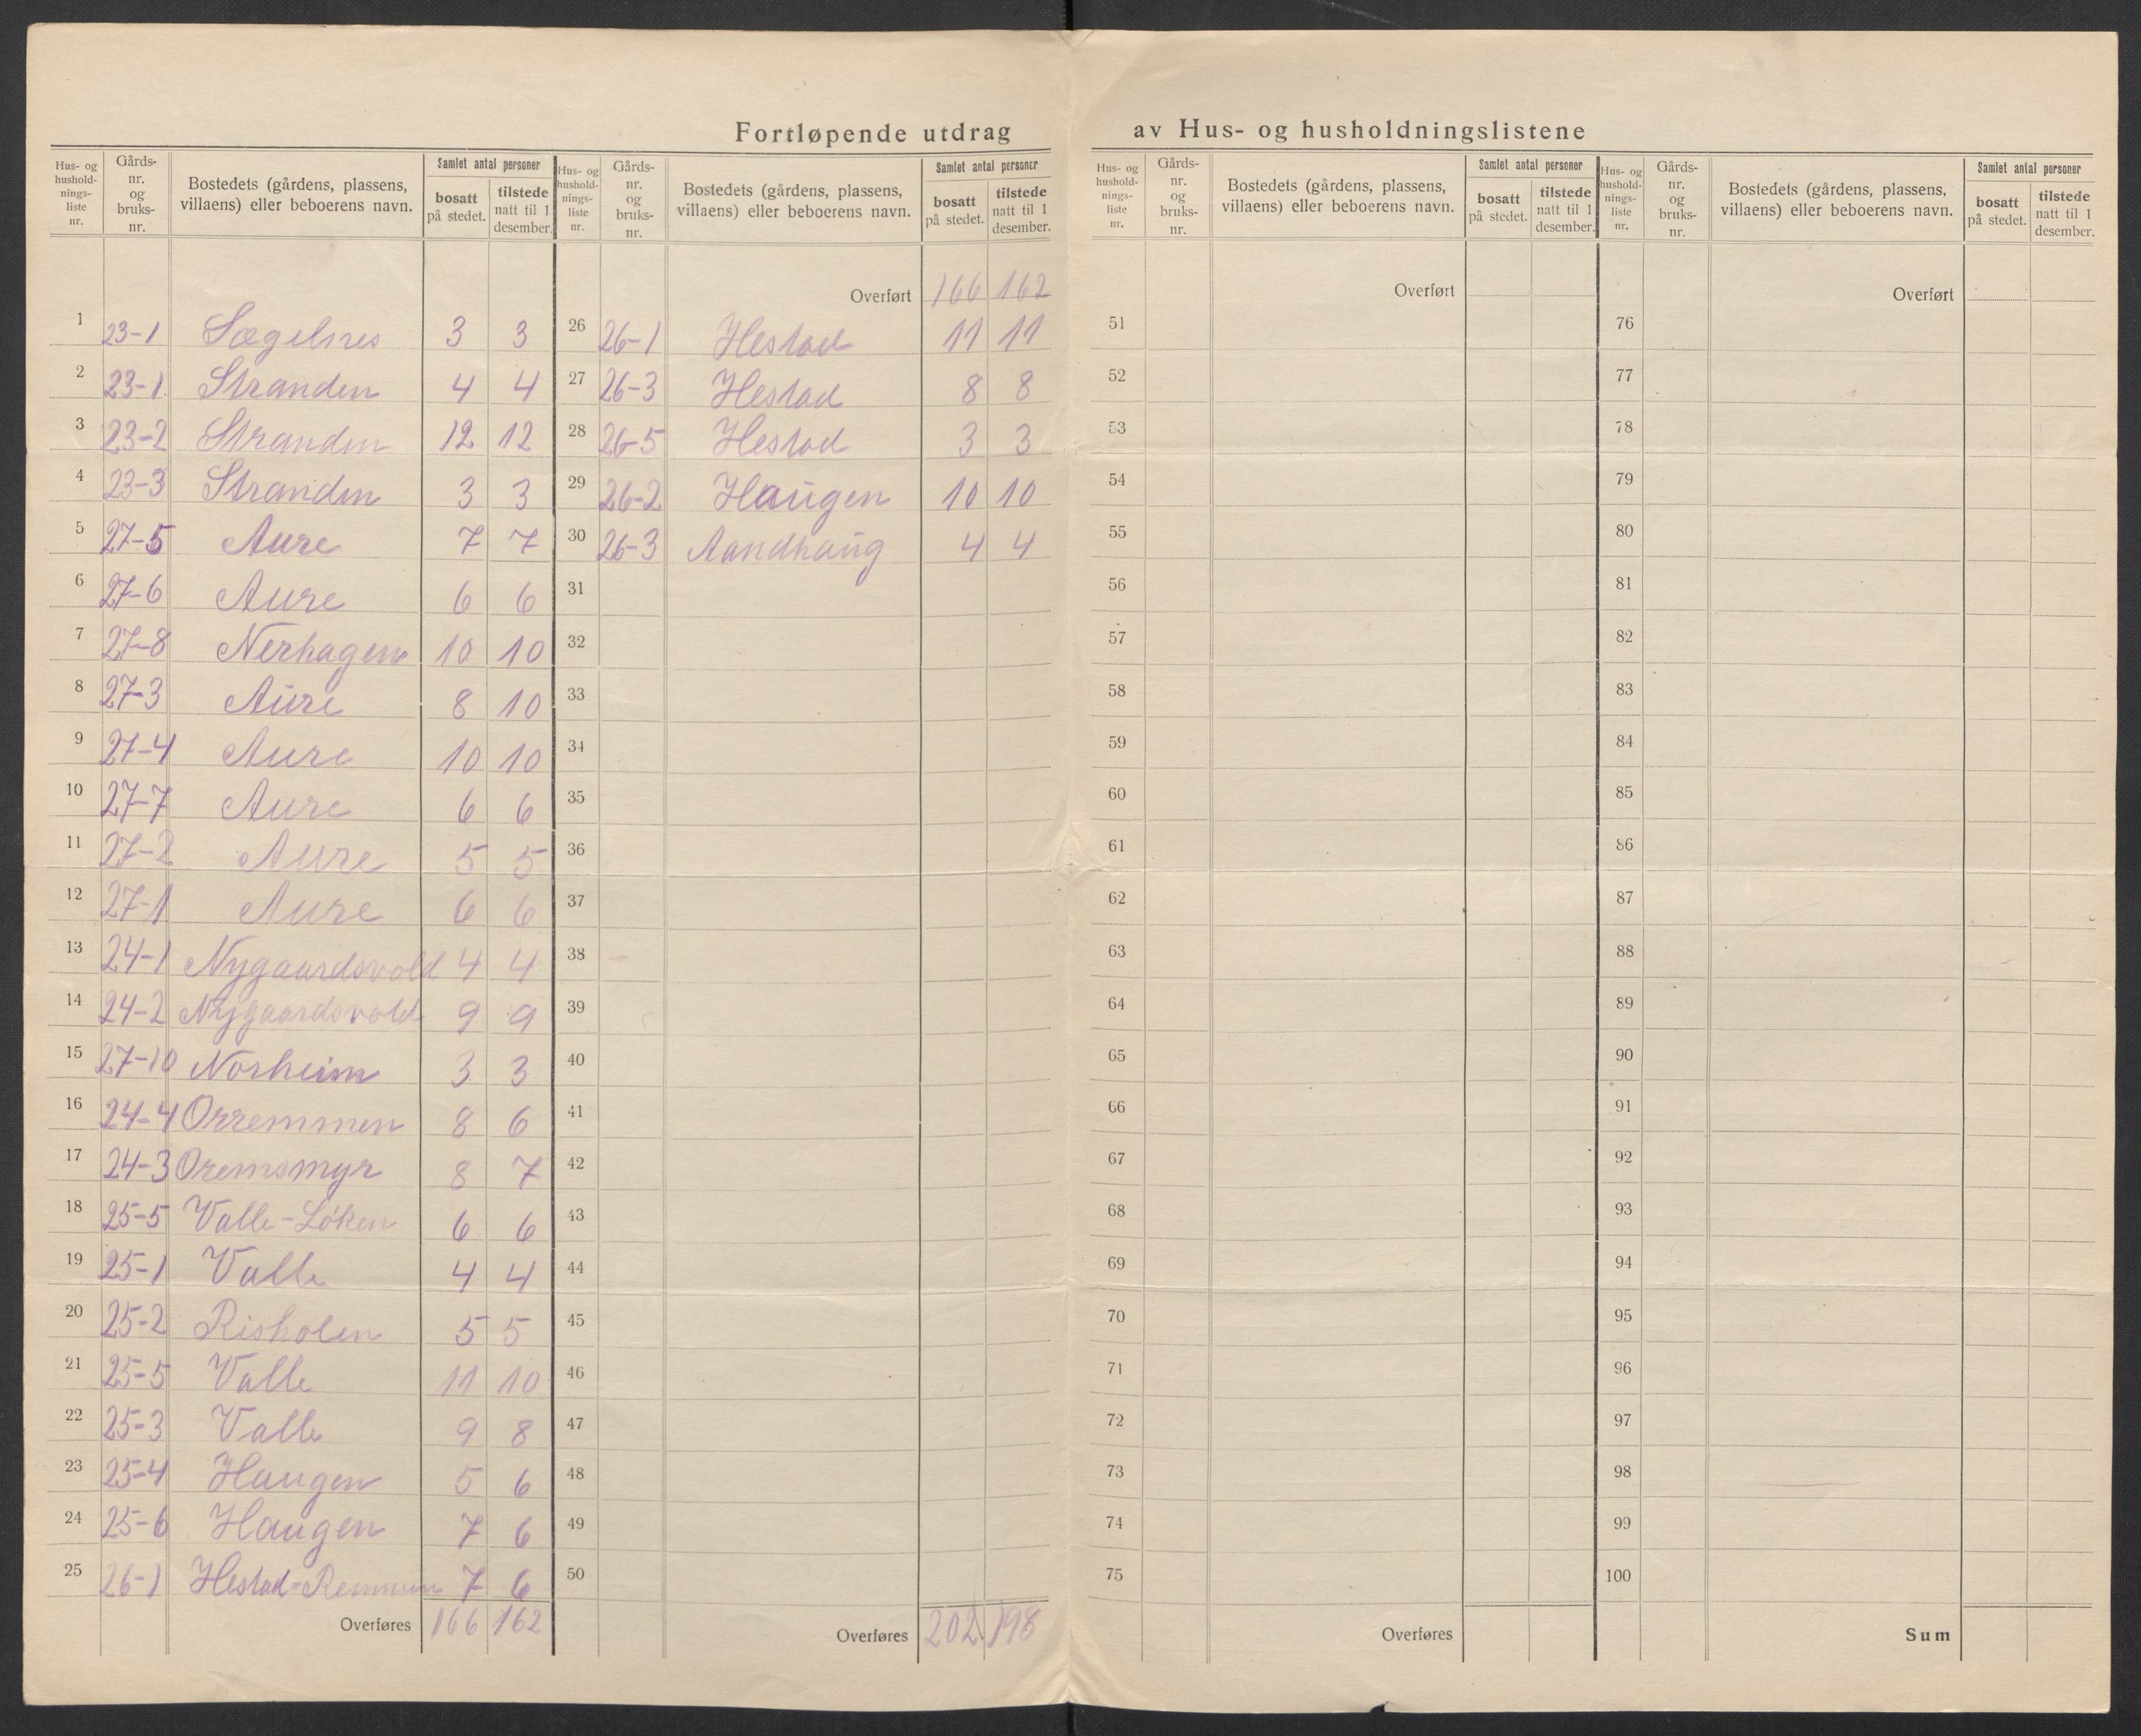 Fortløpende utdrag av Hus- og husholdningslistene
Hus- og hushold-nings-liste nr. Gårds-nr. og bruks-nr. Bostedets (gårdens, plassens, villaens) eller beboerens navn. Samlet antal personer bosatt på stedet. tilstede natt til 1 desember.
1 23-1 Sægelnes 3 3
2 23-1 Stranden 4 4
3 23-2 Stranden 12 12
4 23-3 Stranden 3 3
5 27-5 Aure 7 7
6 27-6 Aure 6 6
7 27-8 Nerhagen 10 10
8 27-3 Aure 8 10
9 27-4 Aure 10 10
10 27-7 Aure 6 6
11 27-2 Aure 5 5
12 27-1 Aure 6 6
13 24-1 Nygaardsvold 4 4
14 24-2 Nygaardsvold 9 9
15 27-10 Norheim 3 3
16 24-4 Orremmen 8 6
17 24-3 Oremsmyr 8 7
18 25-5 Valle-Løken 6 6
19 25-1 Valle 4 4
20 25-2 Risholen 5 5
21 25-5 Valle 11 10
22 25-3 Valle 9 8
23 25-4 Haugen 5 6
24 25-6 Haugen 7 6
25 26-1 Hestad-Remmen 7 6
Overføres 166 162
Hus- og hushold-nings-liste nr. Gårds-nr. og bruks-nr. Bostedets (gårdens, plassens, villaens) eller beboerens navn. Samlet antal personer bosatt på stedet. tilstede natt til 1 desember.
Overført 166 162
26 26-1 Hestad 11 11
27 26-3 Hestad 8 8
28 26-5 Hestad 3 3
29 26-2 Haugen 10 10
30 26-3 Aandhaug 4 4
31
32
33
34
35
36
37
38
39
40
41
42
43
44
45
46
47
48
49
50
Overføres 202 198
Hus- og hushold-nings-liste nr. Gårds-nr. og bruks-nr. Bostedets (gårdens, plassens, villaens) eller beboerens navn. Samlet antal personer bosatt på stedet. tilstede natt til 1 desember.
Overført
51
52
53
54
55
56
57
58
59
60
61
62
63
64
65
66
67
68
69
70
71
72
73
74
75
Overføres
Hus- og hushold-nings-liste nr. Gårds-nr. og bruks-nr. Bostedets (gårdens, plassens, villaens) eller beboerens navn. Samlet antal personer bosatt på stedet. tilstede natt til 1 desember.
Overført
76
77
78
79
80
81
82
83
84
85
86
87
88
89
90
91
92
93
94
95
96
97
98
99
100
Sum